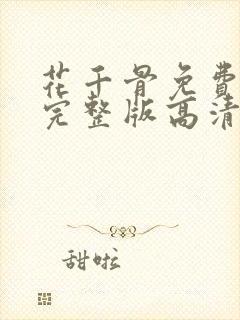 花千骨免費
完整版高清
甜啦